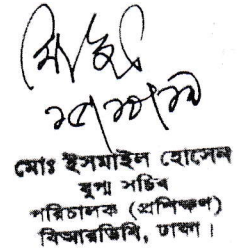 মোঃ ইসমাইল হোসেন
যুগ্ম সচিব
পরিচালক (প্রশিক্ষণ)
বিআরডিবি, ঢাকা।